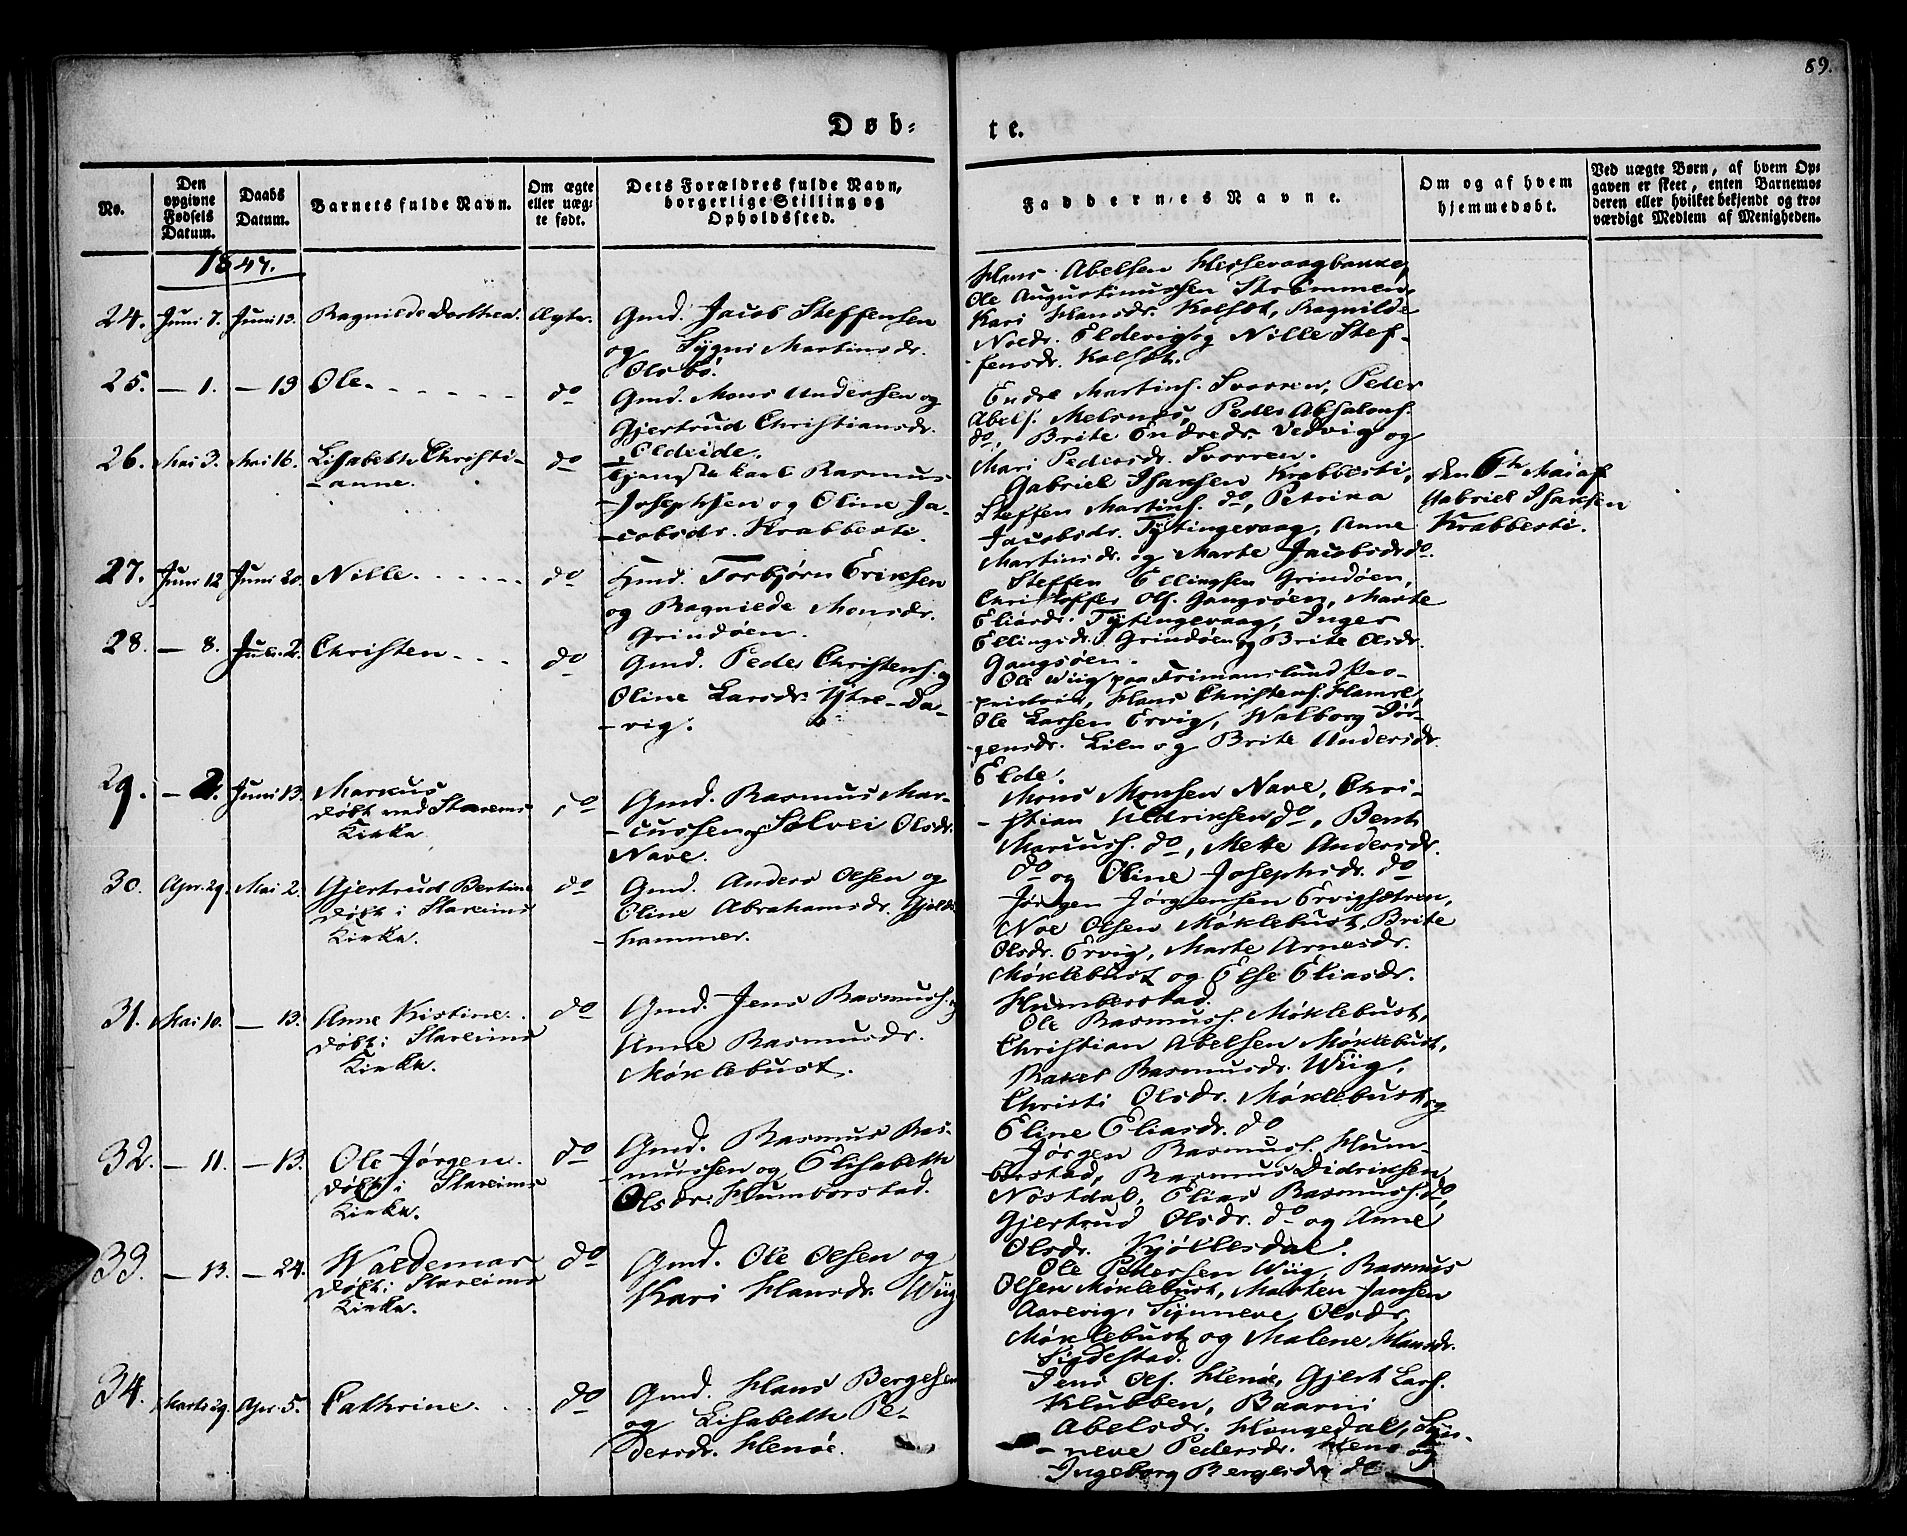 89.
Døb-
te.
No.
Den opgivne Fødsels Datum.
Daabs Datum.
Barnets fulde Navn.
Om ægte eller uægte født.
Dets Forældres fulde Navn, borgerlige Stilling og Opholdssted.
Faddernes Navne.
Om og af hvem hjemmedøbt.
Ved uægte Børn, af hvem Opgaven er skeet, enten Barnemoderen eller hvilket bekjendt og troværdigt Medlem af Menigheden.
1847.
24. Juni 7. Juni 13. Ragnilde Dorthea. Ægte.
Gmd. Jacob Steffensen
og Sygni Martinsdr.
Olsbö.
Hans Abelsen Hessevaagbakke,
Ole Augustinussen Strömmen,
Kari Hansdr. Kolset, Ragnilde
Noedr. Eldevig og Nille Stef-
fensdr. Kolset.
25. — 1. — 13 Ole. do
Gmd. Mons Andersen og
Gjertrud Christiansdr.
Eldeide.
Endre Martins. Svorren, Peder
Abels. Melsnes, Peder Absalons.
do, Brite Endredr. Vedvig og
Mari Pedersdr. Svorren.
26. Mai 3. Mai 16. Lisabeth Christi-
-anne. do
Tjenestekarl Rasmus
Josephsen og Oline Ja-
-cobsdr. Krabbesti.
Gabriel Isaksen Krabbesti,
Steffen Martins. do, Petrika
Jacobsdr. Tytingevaag, Anne
Martinsdr. og Marte Jacobsdr. do.
den 6te Mai af
Gabriel Isaksen
Krabbesti.
27. Juni 12 Juni 20. Nille. do
Gmd. Torbjørn Eriksen
og Ragnilde Monsdr.
Grindöen.
Steffen Ellingsen Grindöen,
Christoffer Ols. Gangsöen, Marte
Eliasdr. Tytingevaag, Inger
Ellingsdr. Grindöen og Brite Olsdr.
Gangsöen.
28. — 8. Juli 2. Christen. do
Gmd. Peder Christens. og
Oline Larsdr. Ytre-Da-
-vig.
Ole Wiig paa Frimanslund Pro-
prietair, Hans Christens. Hamre,
Ole Larsen Ervig, Walborg Jör-
gensdr. Lilu og Brite Andersdr.
Elde.
29. — 2. Juni 13. Markus
døbt ved Stareims
Kirke. do
Gmd. Rasmus Mar-
-cussen og Sølvei Olsdr.
Nave.
Mons Monsen Nave, Chri-
-stian Didriksen do, Bent
Mariuss. do, Mette Andersdr.
do og Oline Josephsdr. do
30. Apr. 29. Mai 2. Gjertrud Bertine
døbt i Stareims
Kirke. do
Gmd. Anders Olsen og
Eline Abrahamsdr. Gjelde
-hammer.
Jörgen Jörgensen Ervigsætren,
Noe Olsen Möklebust, Brite
Olsdr. Ervig, Marte Arnesdr.
Möklebust og Else Eliasdr.
Humberstad.
31. Mai 10. — 13. Anne Kistine.
døbt i Stareims
Kirke. do
Gmd. Jens Rasmuss. og
Anne Rasmusdr.
Möklebust.
Ole Rasmuss. Möklebust,
Christian Abelsen Möklebust,
Rakel Rasmusdr. Wiig,
Christi Olsdr. Möklebust og
Eline Eliasdr. do
32. — 11. — 13. Ole Jørgen.
døbt i Stareims
Kirke. do
Gmd. Rasmus Ras-
-mussen og Elisabeth
Olsdr. Humborstad.
Jørgen Rasmuss. Hum-
borstad, Rasmus Didriksen
Nostdal, Elias Rasmuss. do,
Gjertrud Olsdr. do og Anne
Olsdr. Kjöllesdal.
33. — 13. — 24. Waldemar
døbt i Stareims
Kirke. do
Gmd. Ole Olsen og
Kari Hansdr. Wiig
Ole Pedersen Wiig, Rasmus
Olsen Möklebust, Marten Jansen
Aarevig, Synneve Olsdr.
Möklebust og Malene Hansdr.
Sigdestad.
34. Marts 29. Apr. 5. Cathrine. do
Gmd. Hans Bergesen
og Lisabeth Pe-
dersdr. Henöe.
Jens Ols. Henöe, Gjert Lars.
Klubben, Baarni
Abelsdr. Haugedal, Syn-
-neve Pedersdr. Henö og
Ingeborg Bergesdr. do